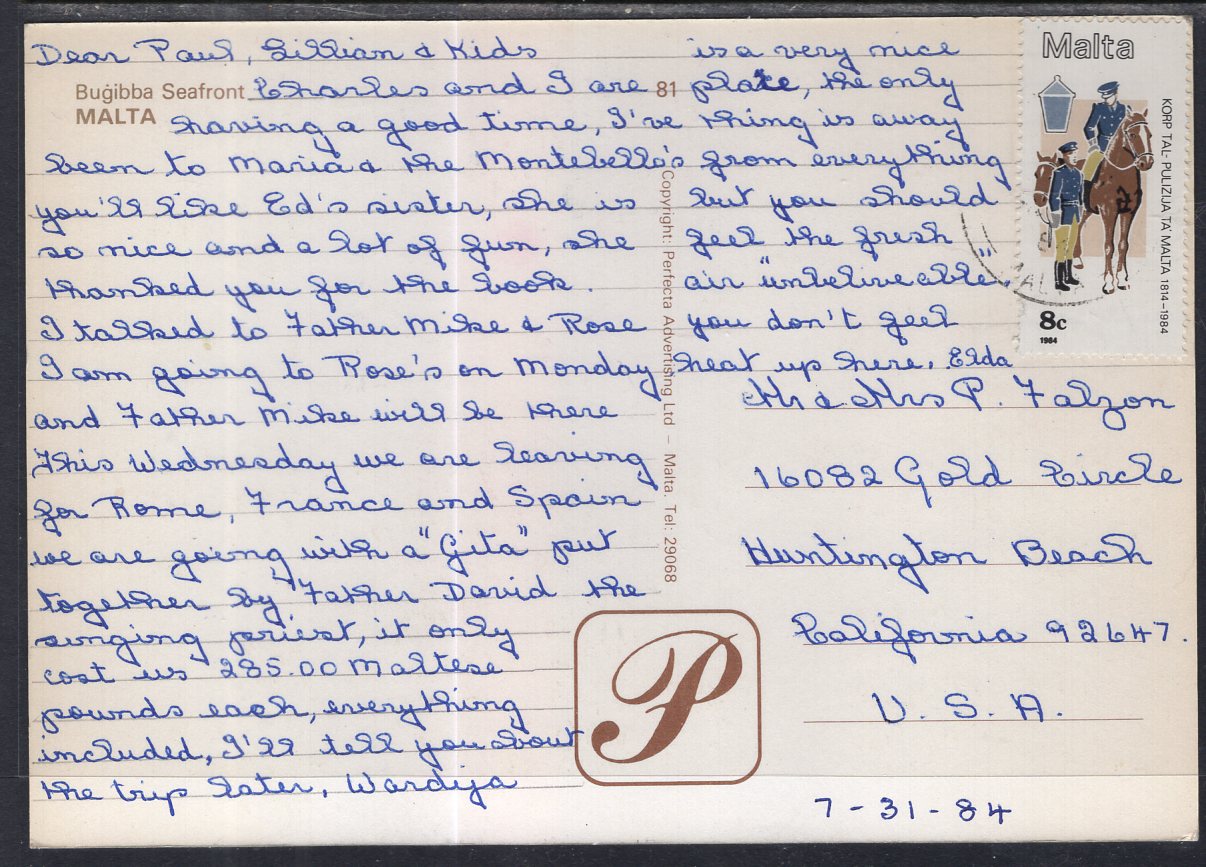 Dear Paul, Lillian & Kids
Buġibba Seafront
MALTA
Charles and I are
having a good time, I've
been to Maria & the Montebello's
you'll like Ed's sister, she is
so nice and a lot of fun, she
thanked you for the book.
I talked to Father Mike & Rose
I am going to Rose's on Monday
and Father Mike will be there
This Wednesday we are leaving
for Rome, France and Spain
we are going with a "Gita" put
together by "Father David the
singing priest, it only
cost us 285.00 Maltese
pounds each, everything
included, I'll tell you about
the trip later, Wardija
is a very nice
81 place, the only
thing is away
from everything
but you should
feel the fresh
air "unbeliveable"
you don't feel
heat up here. Elda
Copyright: Perfecta Advertising Ltd – Malta. Tel: 29068
P
Malta
KORP TAL-PULIZIJA TA' MALTA 1814-1984
8c
1984
MALTA
Mr & Mrs P. Falzon
16082 Gold Circle
Huntington Beach
California 92647.
U. S. A.
7-31-84